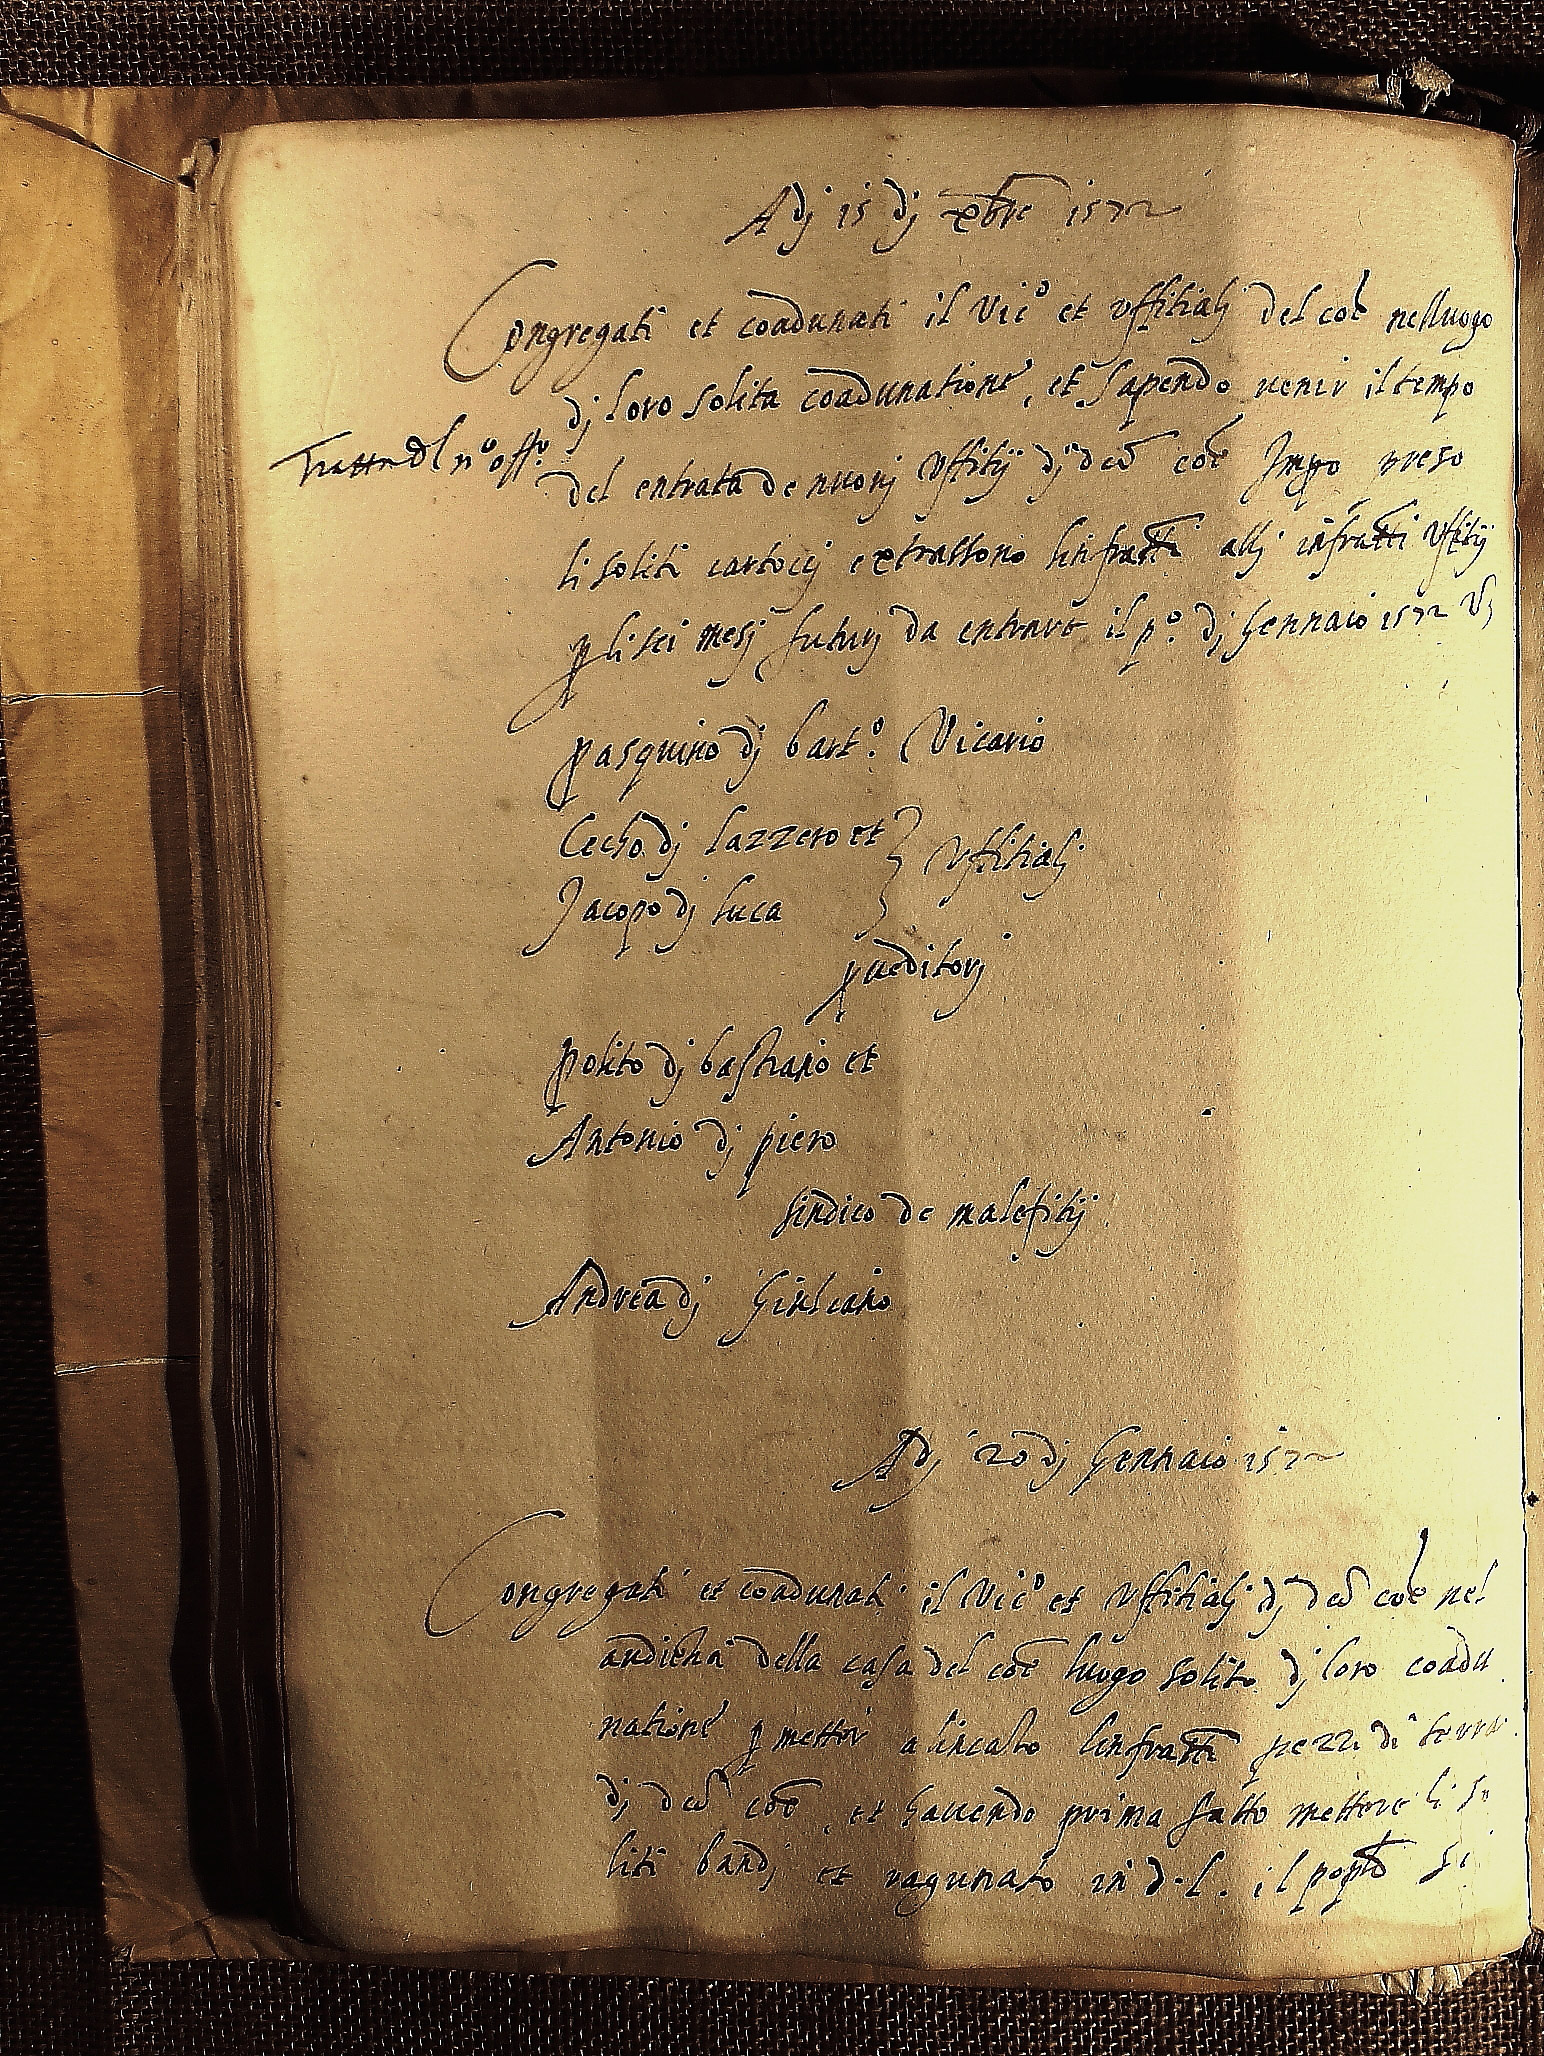 Adj 15 dj xbre 1572
Congregati et coadunati il Vic° et Uffitialj del coe nelluogo
dj loro solita coadunatione, et sapendo venir il tempo
Tratta del n° off°
del entrata de nuovj Uffitij dj dco coe Impo preso
li soliti cartoccj extrassono linfratti allj infratti Uffitij
p li sei mesj futurj da entrare il p°. dj Gennaio 1572 Vz
Pasquino dj bart°. Vicario
Cecho dj lazzero et
Uffitialj
Jacopo dj luca
Proveditorj
Polito dj bastiano et
Antonio dj piero
sindico de malefitij
Andrea dj Giuliano
Adj 20 dj Gennaio 1572
Congregati et coadunati il Vic° et Uffitialj dj dco coe nel
audientia della casa del coe luogo solito dj loro coadu
natione p metter a lincanto linfratti pezzi di terra
dj dco coe, et havendo prima fatto mettere li so
liti bandj et ragunato in d. l. il poplo si